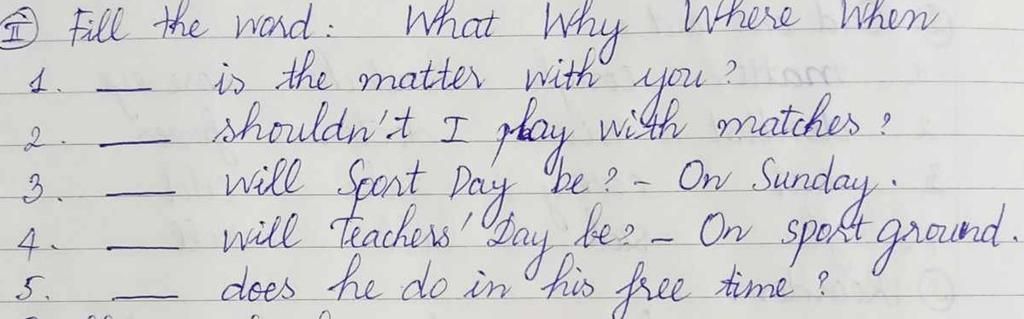 II Fill the word: What Why Where When
1. __ is the matter with you?
2. __ shouldn't I play with matches?
3. __ will Sport Day be? - On Sunday.
4. __ will Teachers' Day be? - On sport ground.
5. __ does he do in his free time?